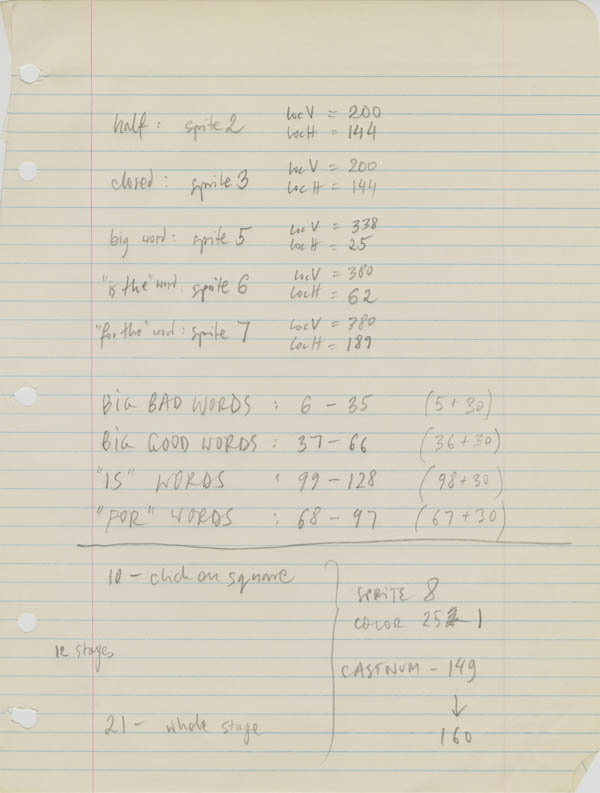 half : sprite 2 locV = 200
locH = 144
closed : sprite 3 locV = 200
locH = 144
big word : sprite 5 locV = 338
locH = 25
"is the" word. sprite 6 locV = 380
locH = 62
"for the" word : sprite 7 locV = 380
locH = 189
BIG BAD WORDS : 6 - 35 (5 + 30)
BIG GOOD WORDS : 37 - 66 (36 + 30)
"IS" WORDS : 99 - 128 (98 + 30)
"FOR" WORDS : 68 - 97 (67 + 30)
10 - click on square
SPRITE 8
COLOR 25 1
12 stages
CASTNUM - 149
↓
21 - whole stage
160